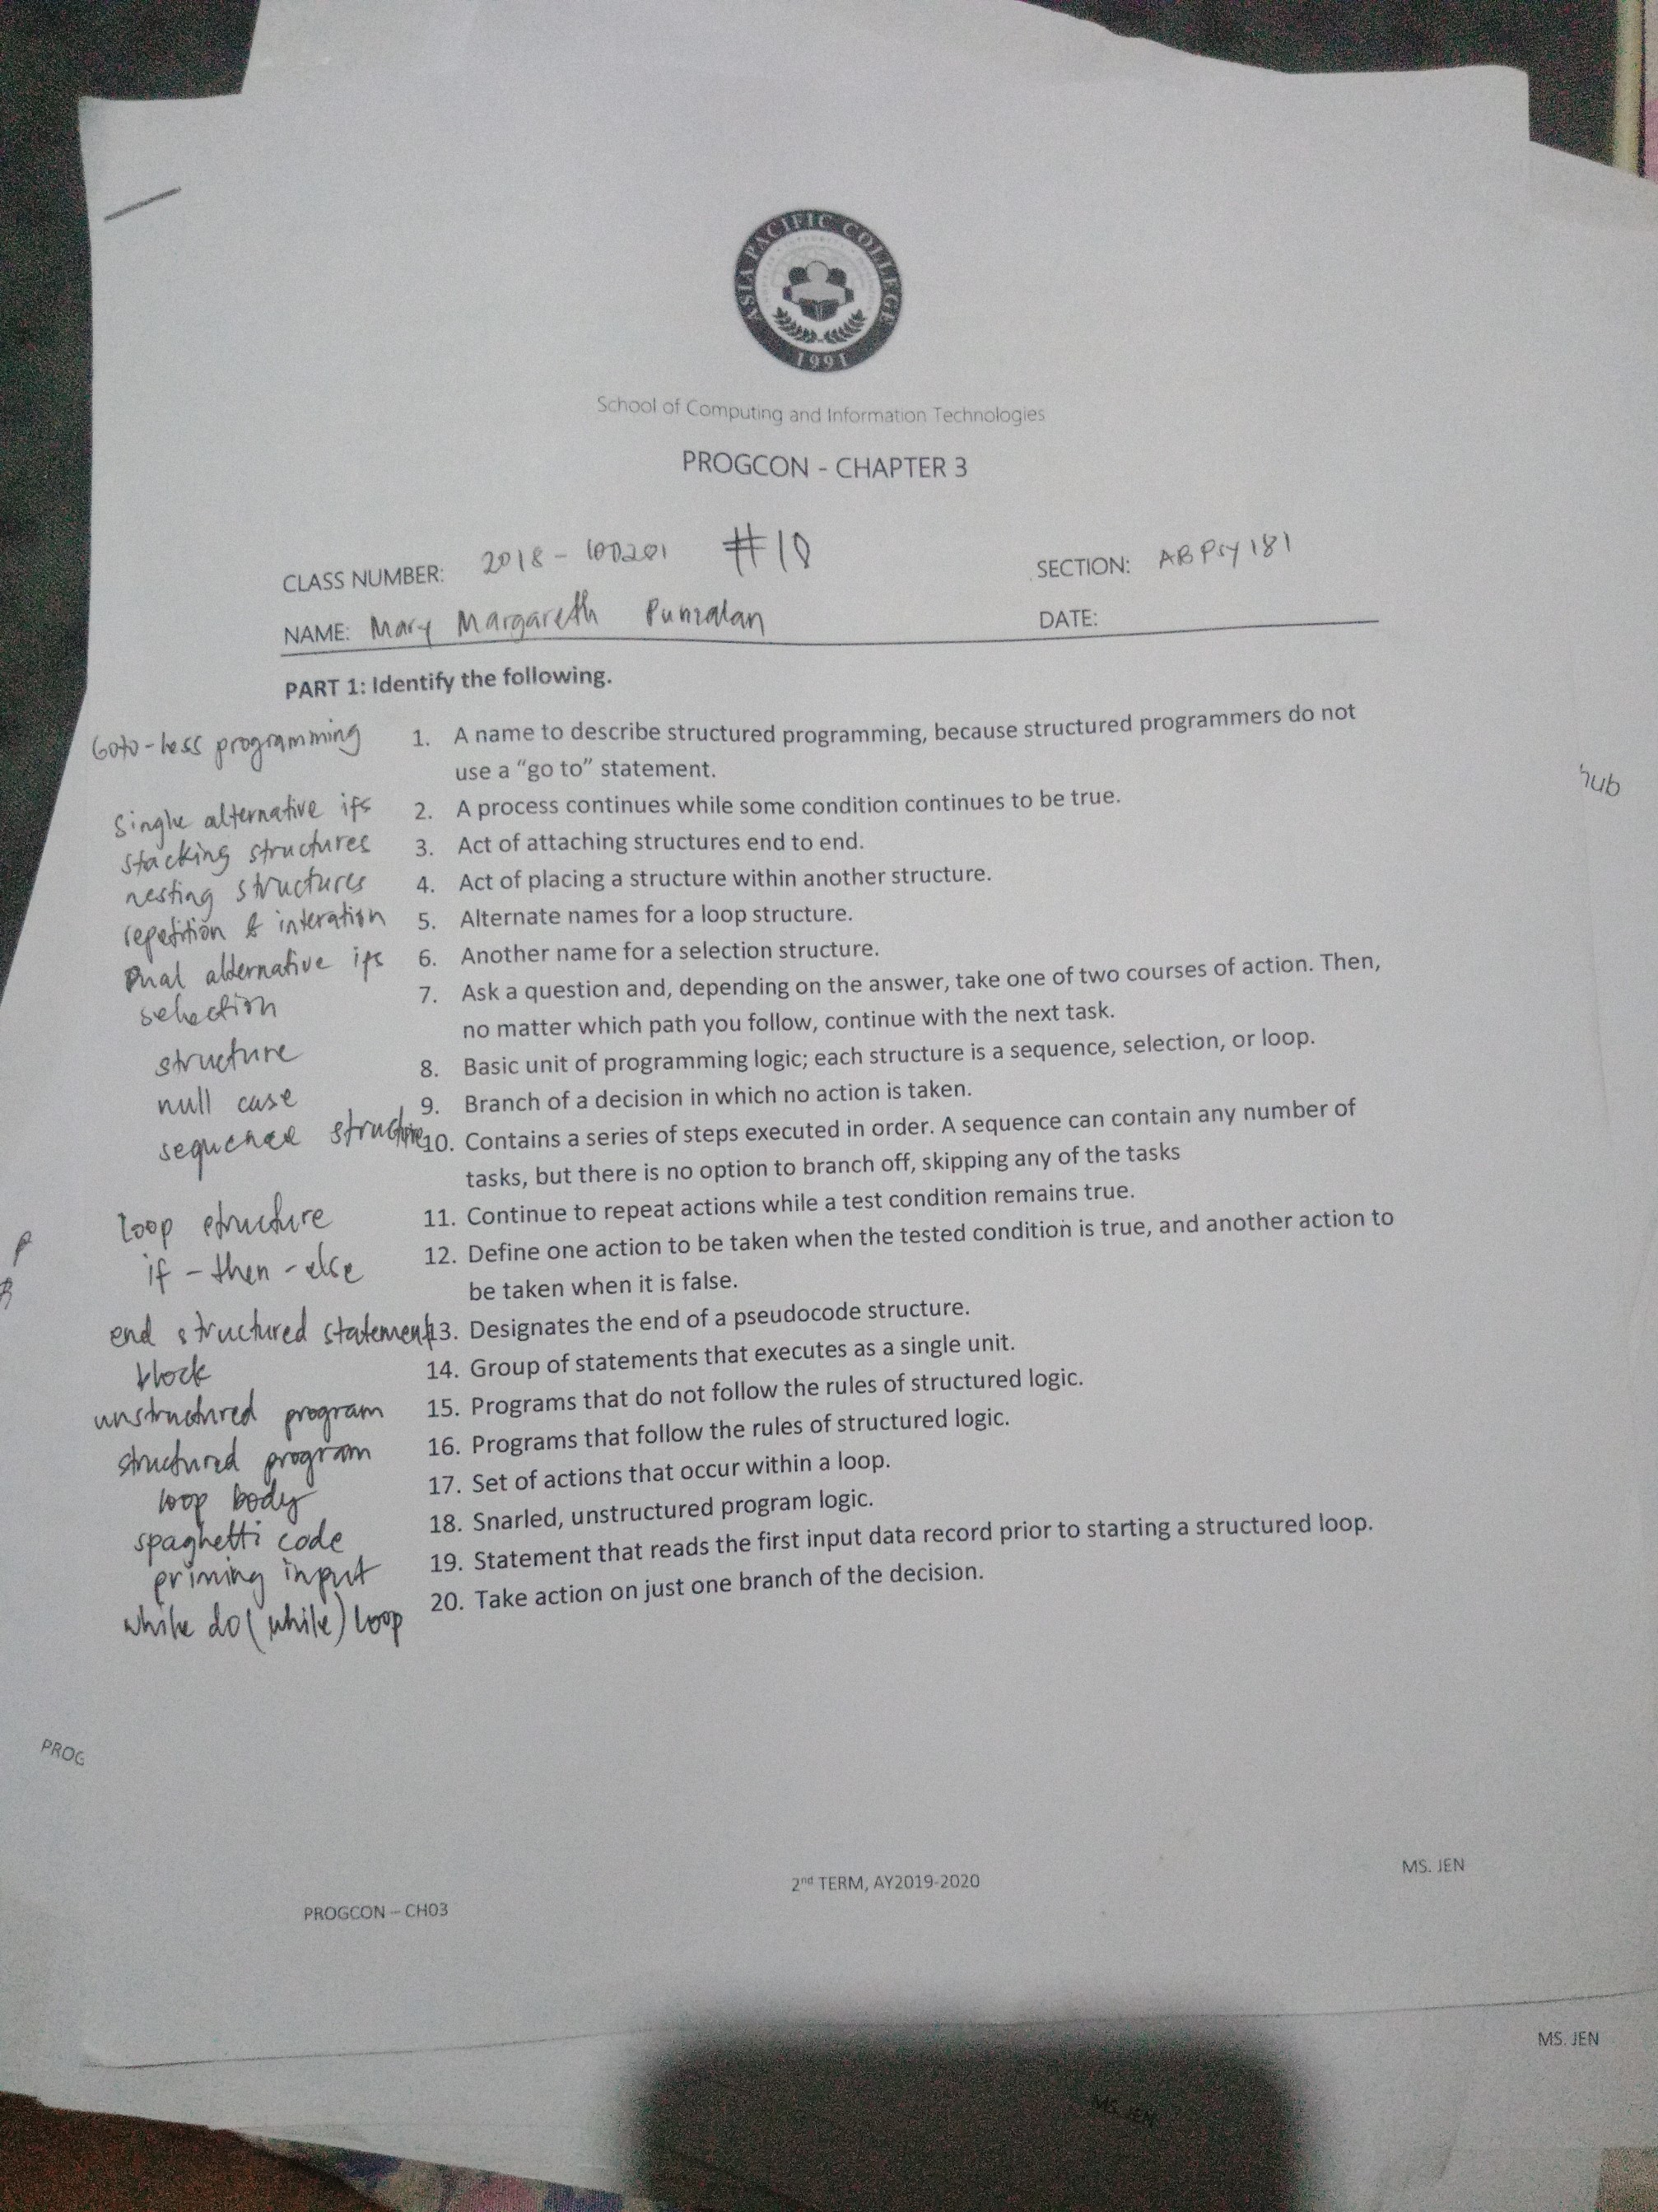 ASIA PACIFIC COLLEGE
1991
School of Computing and Information Technologies
PROGCON - CHAPTER 3
CLASS NUMBER: 2018-100201 #18 SECTION: ABPsy181
NAME: Mary Margareth Punzalan DATE:
PART 1: Identify the following.
Goto-less programming 1. A name to describe structured programming, because structured programmers do not
use a “go to” statement.
single alternative ifs 2. A process continues while some condition continues to be true.
stacking structures 3. Act of attaching structures end to end.
nesting structures 4. Act of placing a structure within another structure.
repetition & interation 5. Alternate names for a loop structure.
Dual aldernative ifs 6. Another name for a selection structure.
selection 7. Ask a question and, depending on the answer, take one of two courses of action. Then,
no matter which path you follow, continue with the next task.
structure 8. Basic unit of programming logic; each structure is a sequence, selection, or loop.
null case 9. Branch of a decision in which no action is taken.
sequence structure 10. Contains a series of steps executed in order. A sequence can contain any number of
tasks, but there is no option to branch off, skipping any of the tasks
loop structure 11. Continue to repeat actions while a test condition remains true.
if-then-else 12. Define one action to be taken when the tested condition is true, and another action to
be taken when it is false.
end structured statement 13. Designates the end of a pseudocode structure.
block 14. Group of statements that executes as a single unit.
unstructured program 15. Programs that do not follow the rules of structured logic.
structured program 16. Programs that follow the rules of structured logic.
loop body 17. Set of actions that occur within a loop.
spaghetti code 18. Snarled, unstructured program logic.
priming input 19. Statement that reads the first input data record prior to starting a structured loop.
while do (while) loop 20. Take action on just one branch of the decision.
PROG
PROGCON – CH03 2nd TERM, AY2019-2020 MS. JEN
MS. JEN
MS. JEN